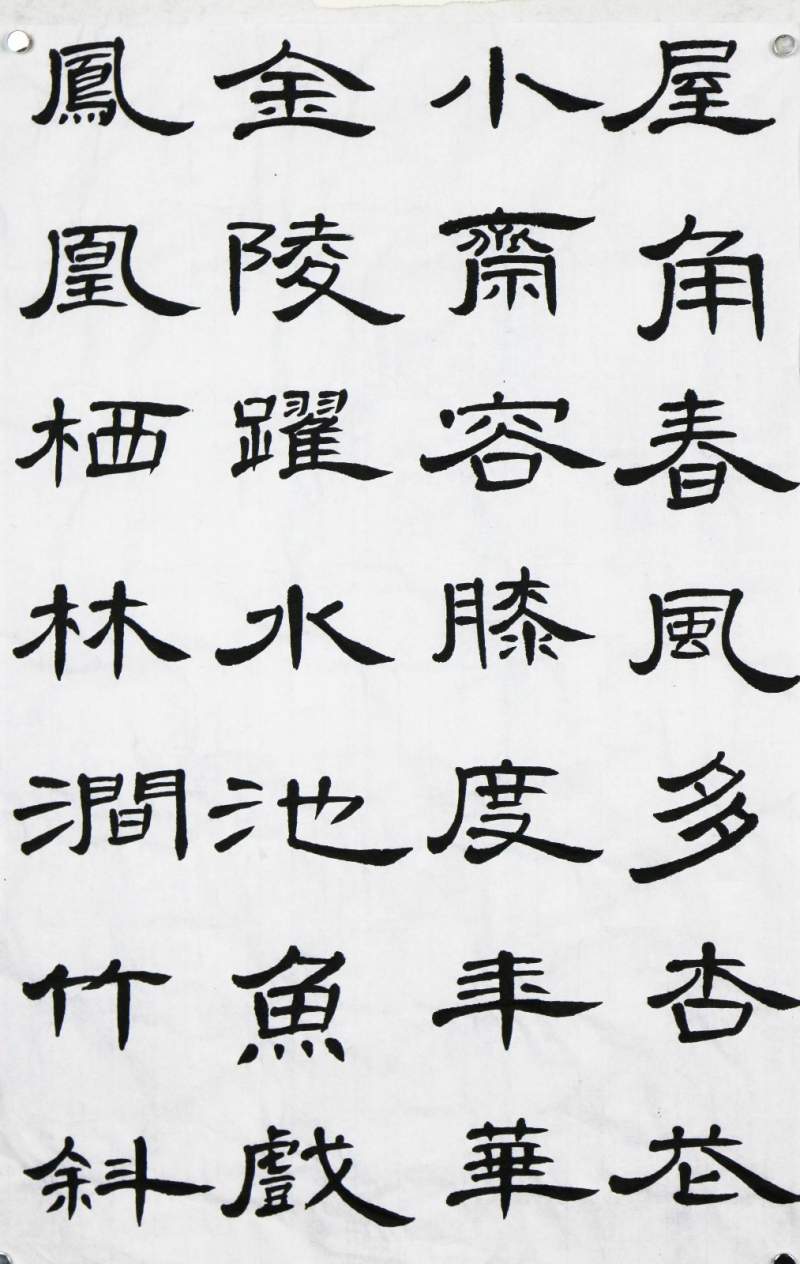 屋角春風多杏花
小齋容膝度年華
金陵躍水池魚戲
鳳凰栖林澗竹斜